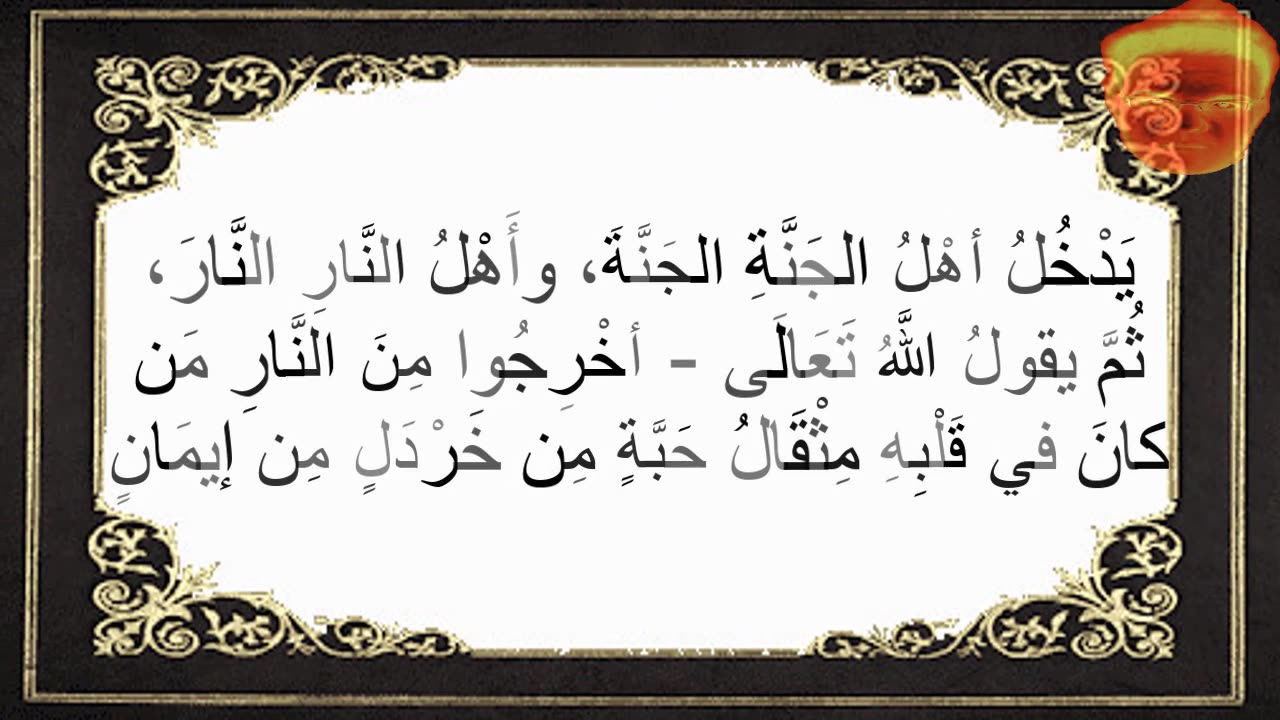 يَدْخُلُ أهْلُ الجَنَّةِ الجَنَّةَ، وأَهْلُ النَّارِ النَّارَ،
ثُمَّ يقولُ اللَّهُ تَعَالَى - أخْرِجُوا مِنَ النَّارِ مَن
كانَ في قَلْبِهِ مِثْقَالُ حَبَّةٍ مِن خَرْدَلٍ مِن إيمَانٍ